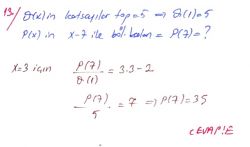 13./ Q(x)in katsayılar top=5 ⟹ Q(1)=5
P(x) in x-7 ile böl. kalan = P(7)=?
x=3 için P(7)/Q(1) = 3.3-2
P(7)/5 = 7 ⟹ P(7)=35
CEVAP:E